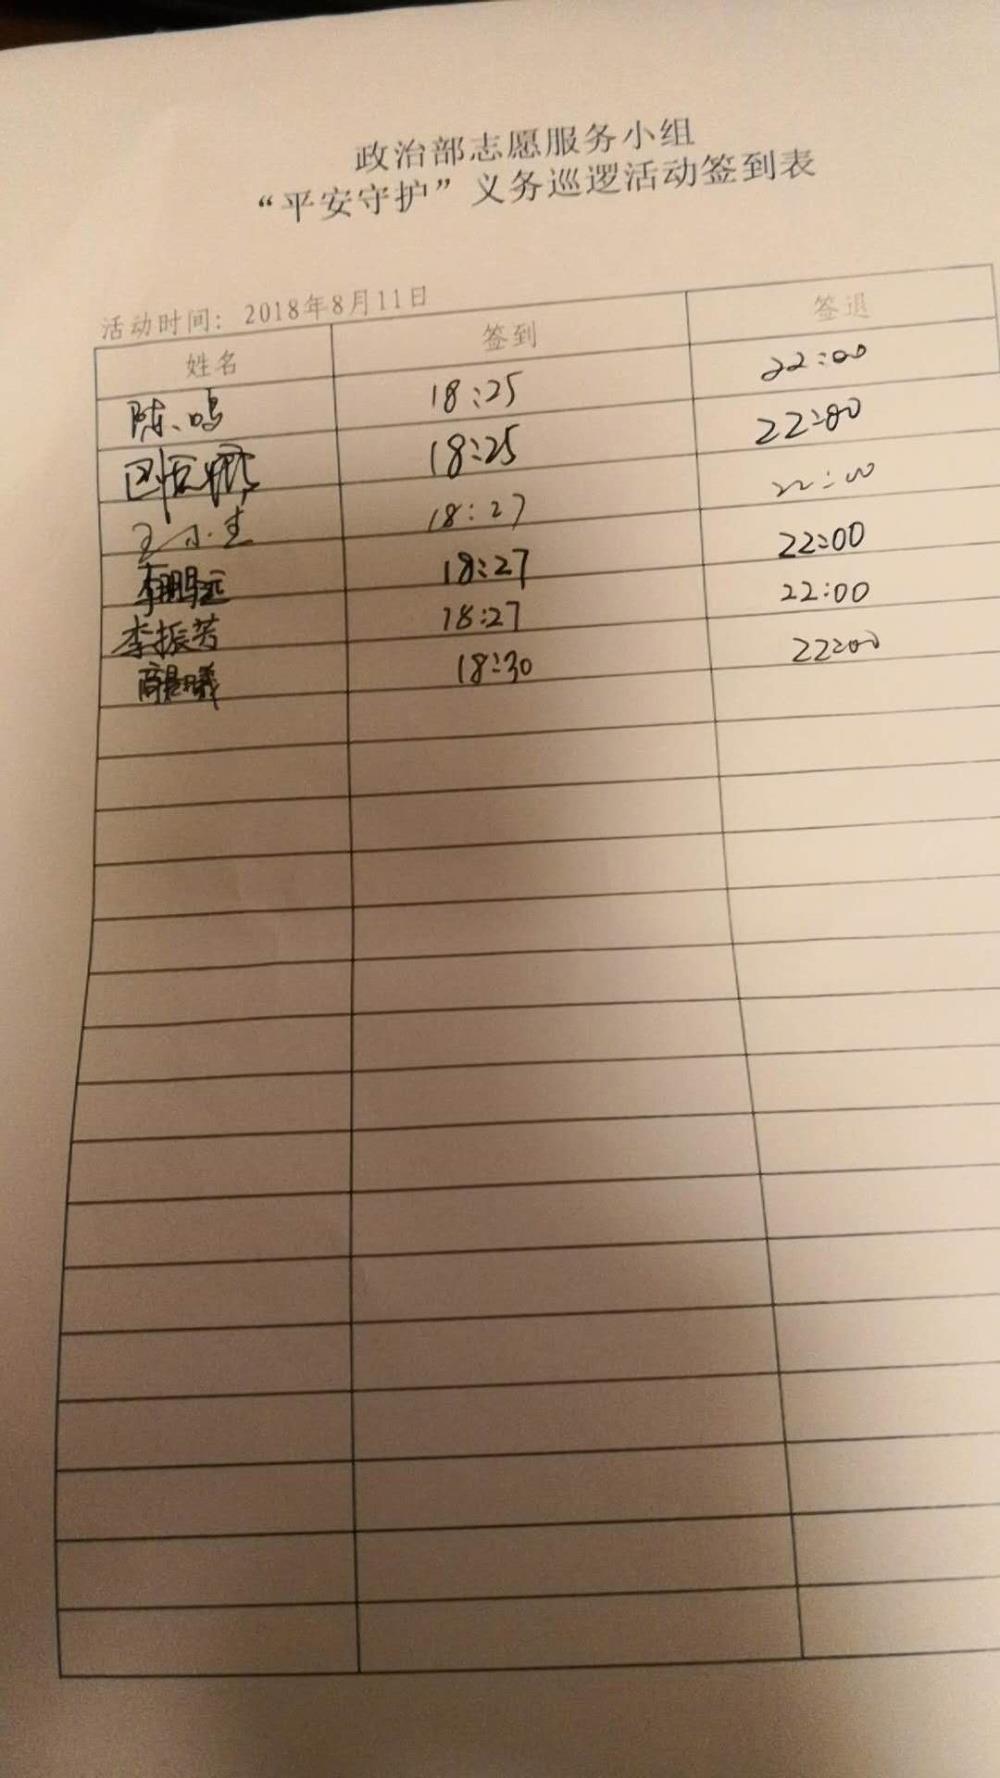 政治部志愿服务小组
“平安守护”义务巡逻活动签到表
活动时间: 2018年8月11日
姓名 签到 签退
陈鸣 18:25 22:00
18:25 22:00
王小生 18:27 22:00
李鹏远 18:27 22:00
李振芳 18:27 22:00
18:30 22:00